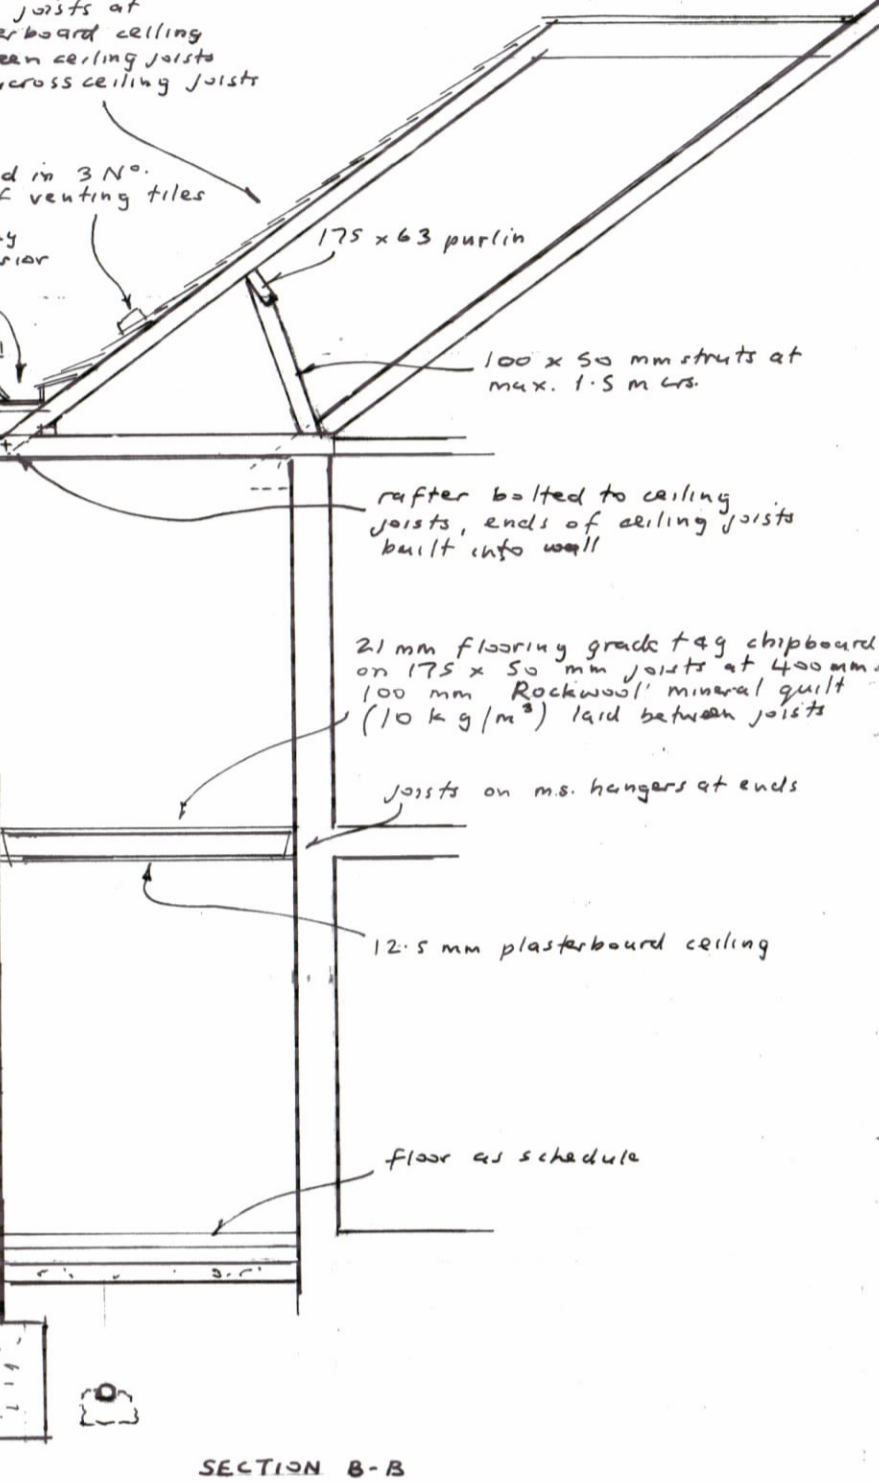 joists at
board ceiling
ceiling joists
across ceiling joists
in 3 Nº.
venting tiles
175 x 63 purlin
100 x 50 mm struts at
max. 1.5 m crs.
rafter bolted to ceiling
joists, ends of ceiling joists
built into wall
21 mm flooring grade t&g chipboard
on 175 x 50 mm joists at 400 mm
100 mm 'Rockwool' mineral quilt
(10 kg/m³) laid between joists
joists on m.s. hangers at ends
12.5 mm plasterboard ceiling
floor as schedule
SECTION B-B